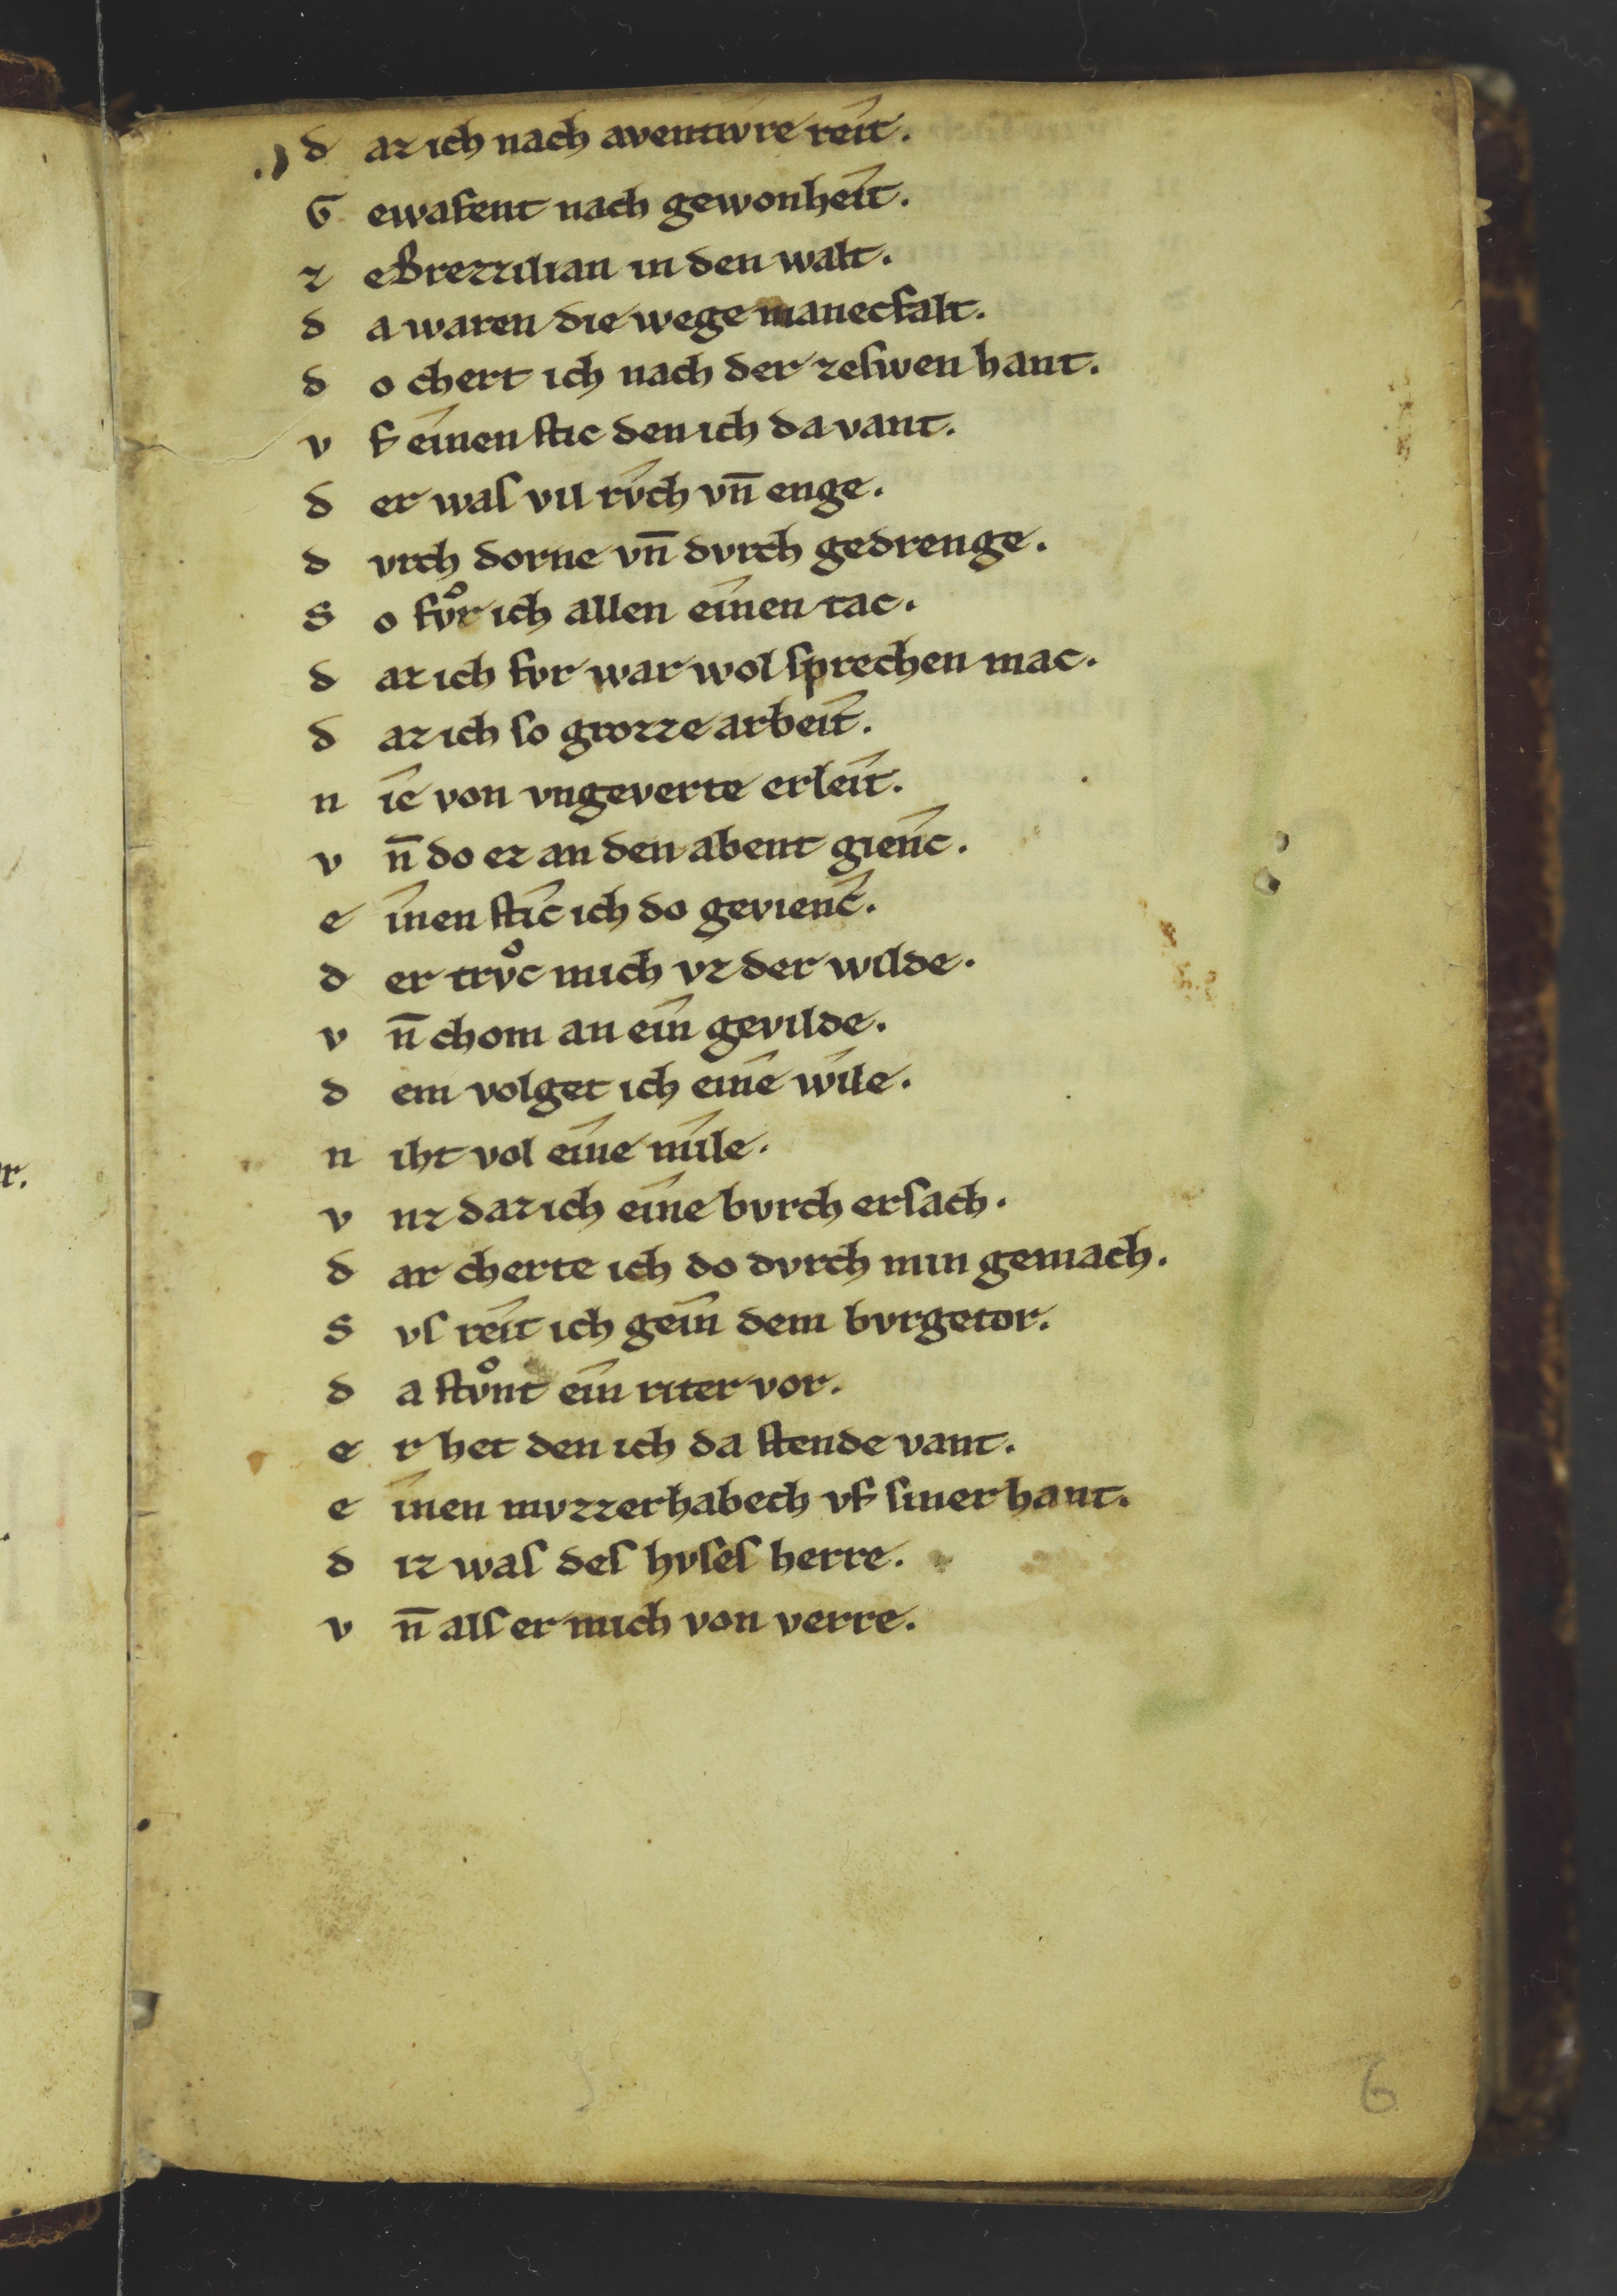 d az ich nach aventivre reît.
G ewafent nach gewonheît.
z eBrezzilian in den walt.
d a waren die wege manecfalt.
d o chert ich nach der zeſwen hant.
v f eînen ſtic den ich da vant.
d er waſ vil rv̂ch vn̄ enge.
d vrch dorne vn̄ dvrch gedrenge.
S o fvͦr ich allen eînen tac.
d az ich fvr war wol ſprechen mac.
d az ich ſo grozze arbeît.
n îe von vngeverte erleît.
v n̄ do ez an den abent gîenc.
e înen ſtîc ich do gevîenc.
d er trvͦc mich vz der wilde.
v n̄ chom an eîn gevilde.
d em volget ich eîne wîle.
n iht vol eîne mîle.
v nz daz ich eîne bvrch erſach.
d ar cherte ich do dvrch min gemach.
S vſ reît ich geîn dem bvrgetor.
d a ſtvͦnt eîn riter vor.
e r het den ich da ſtende vant.
e înen mvzzerhabech vf ſiner hant.
d iz waſ deſ hvſeſ herre.
v n̄ alſ er mich von verre.
6
r.
.